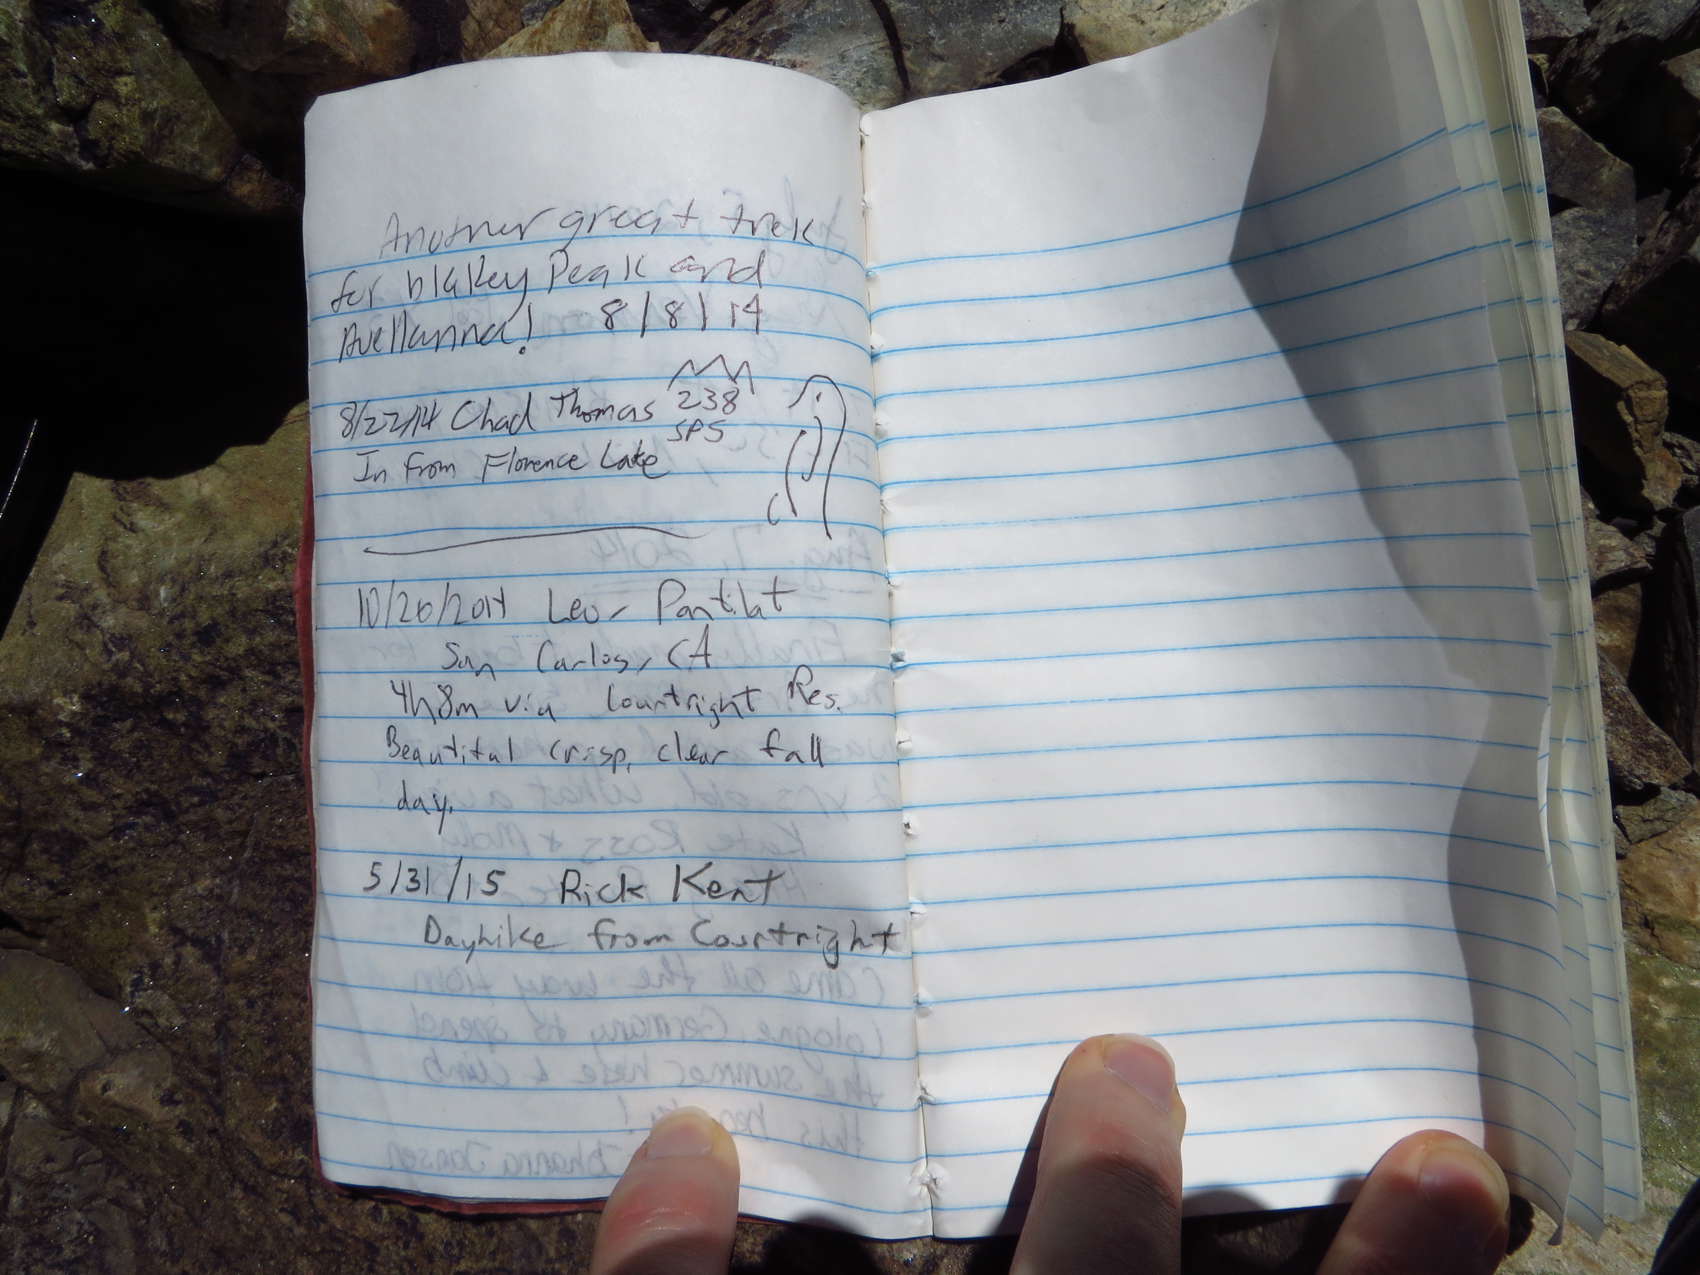 Another great trek
for blakey Peak and
Avellanna! 8/8/14
8/22/14 Chad Thomas 238
SPS
In from Florence Lake
10/26/2014 Leor Pantilat
San Carlos, CA
4h8m via Courtright Res.
Beautiful crisp, clear fall
day.
5/31/15 Rick Kent
Dayhike from Courtright